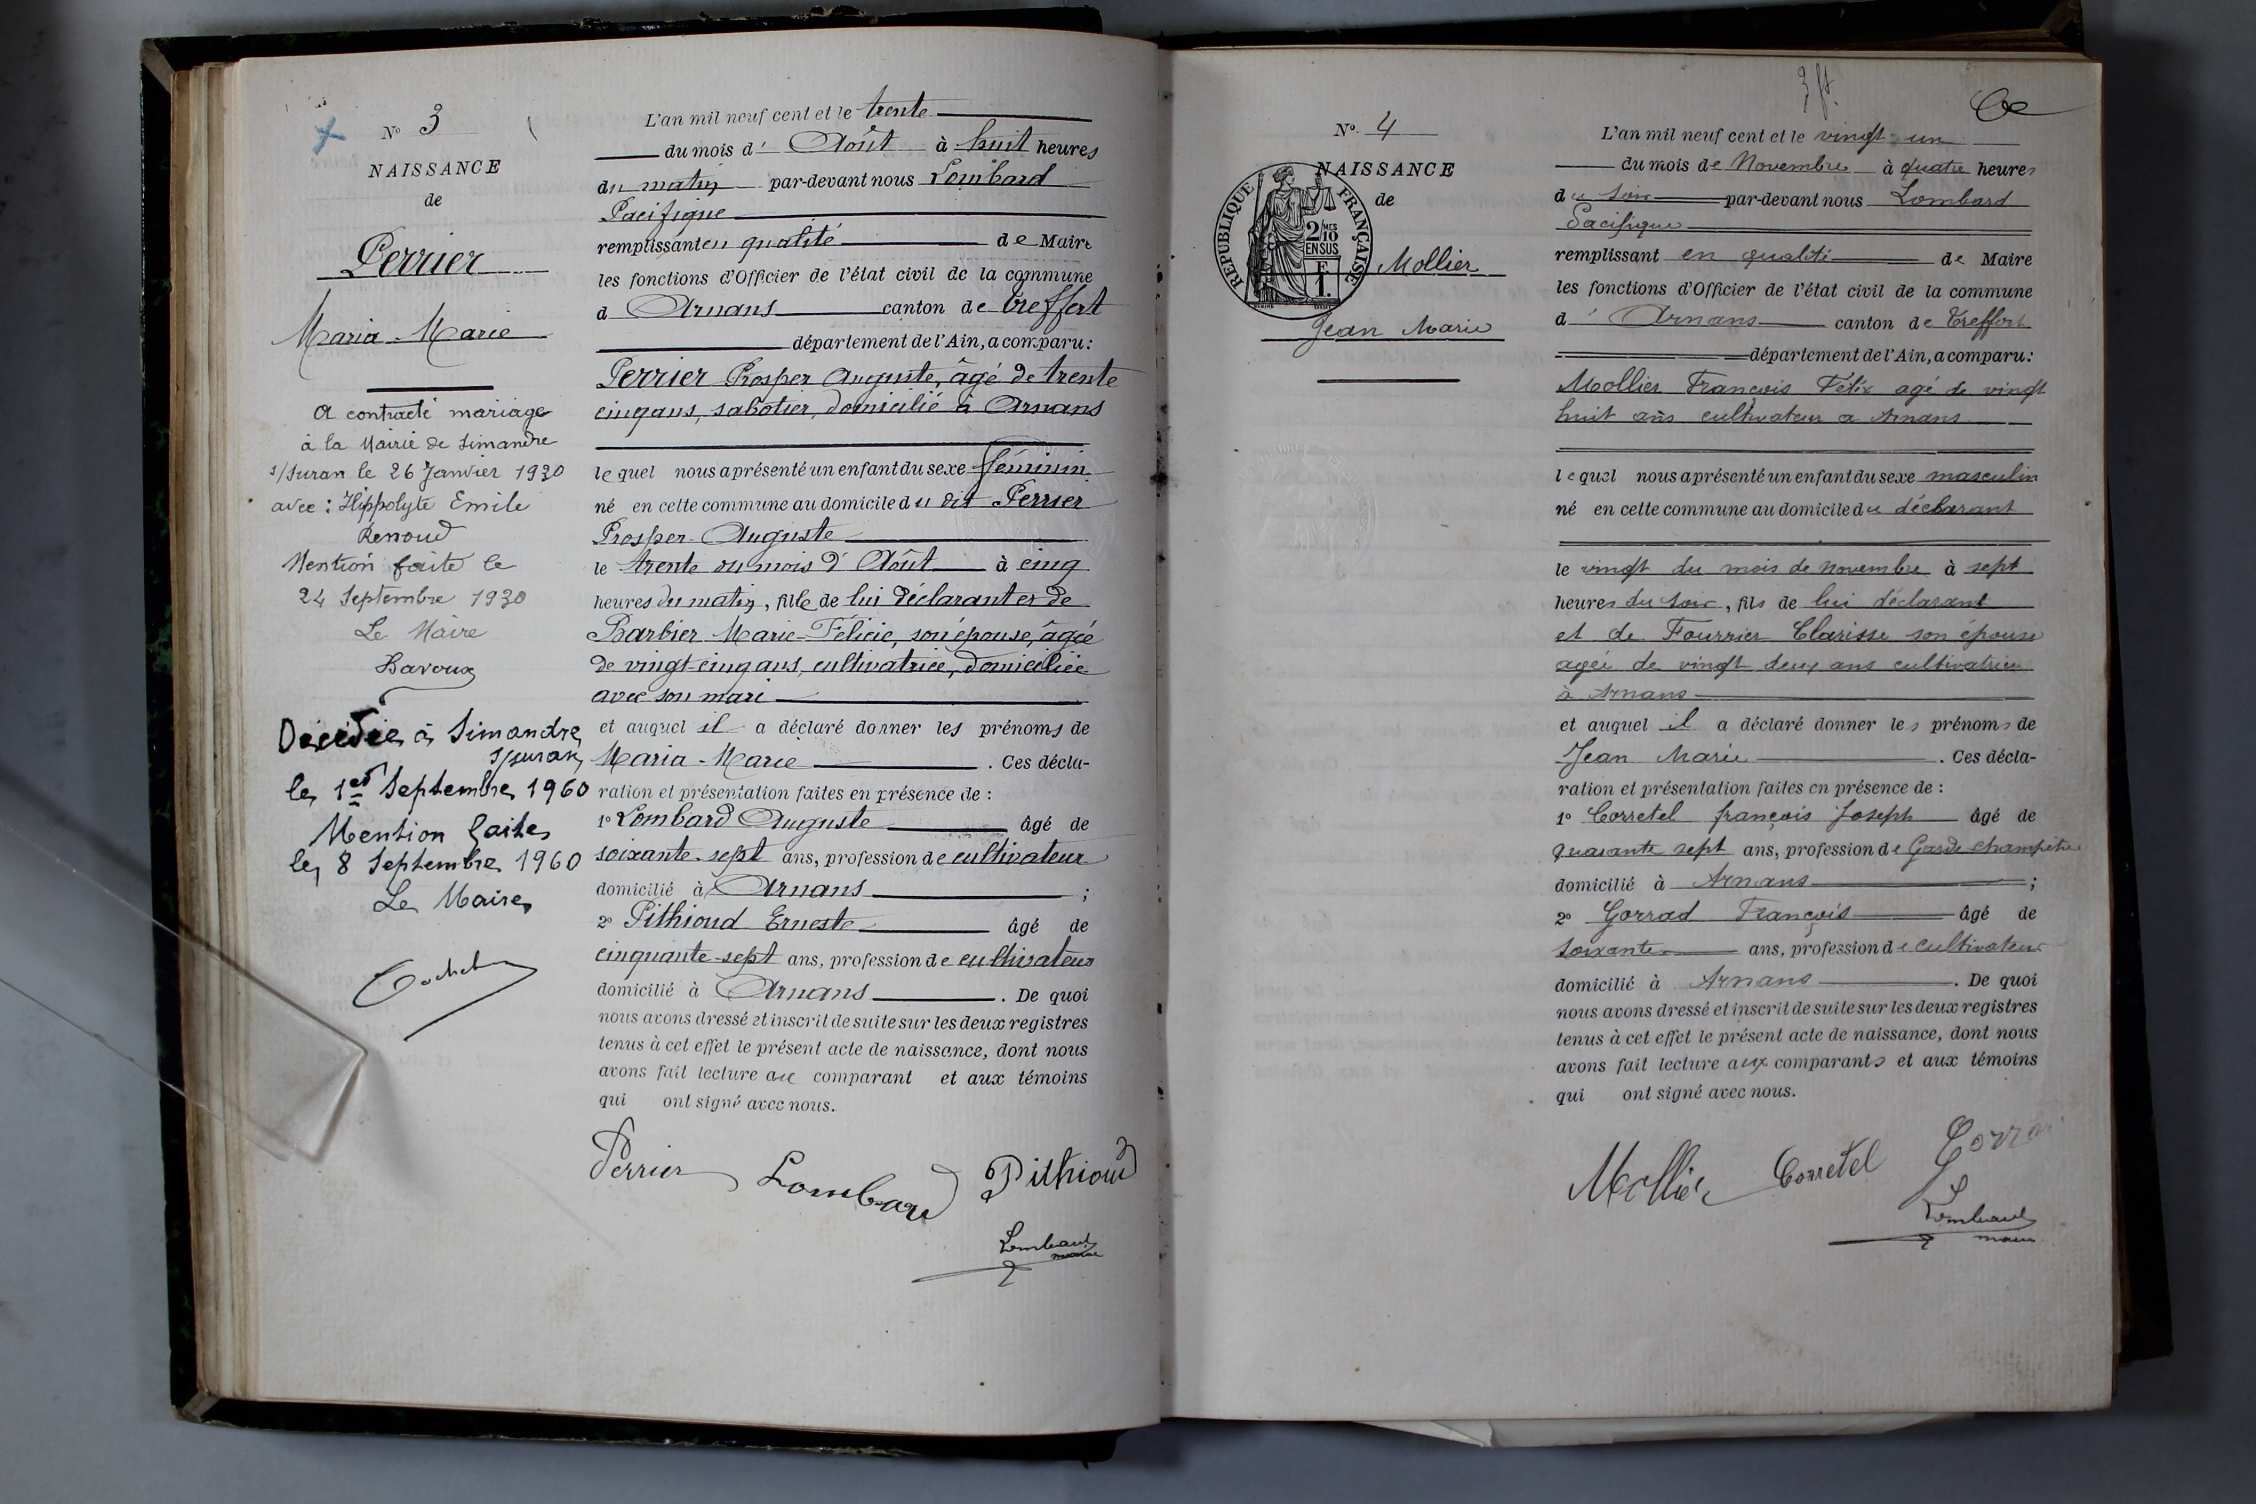 N° 3
NAISSANCE
de
Perrier
Maria-Marie
A contracté mariage
à la Mairie de Simandre
s/Suran le 26 Janvier 1930
avec : Hippolyte Emile
Renoud
Mention faite le
24 Septembre 1930
Le Maire
Bavoux
Décédée à Simandre
s/suran
le 1er Septembre 1960
Mention faite
le 8 Septembre 1960
Le Maire
L'an mil neuf cent et le trente
du mois d' Août à huit heures
du matin par-devant nous Lombard
Pacifique
remplissant en qualité de Maire
les fonctions d'Officier de l'état civil de la commune
d Arnans canton de Treffort
département de l'Ain, a comparu:
Perrier Prosper Auguste, âgé de trente
cinq ans, sabotier, domicilié à Arnans
lequel nous a présenté un enfant du sexe féminin
né en cette commune au domicile du dit Perrier
Prosper-Auguste
le trente du mois d'Août à cinq
heures du matin, fille de lui déclarant et de
Barbier Marie-Félicie, son épouse, âgée
de vingt-cinq ans, cultivatrice, domiciliée
avec son mari
et auquel il a déclaré donner les prénoms de
Maria-Marie . Ces décla-
ration et présentation faites en présence de :
1° Lombard Auguste âgé de
soixante-sept ans, profession de cultivateur
domicilié à Arnans ;
2° Pithioud Ernest âgé de
cinquante-sept ans, profession de cultivateur
domicilié à Arnans . De quoi
nous avons dressé et inscrit de suite sur les deux registres
tenus à cet effet le présent acte de naissance, dont nous
avons fait lecture au comparant et aux témoins
qui ont signé avec nous.
Perrier Lombard Pithioud
Lombard
maire
3 ft.
N° 4
NAISSANCE
de
RÉPUBLIQUE FRANÇAISE
2 MES
10
EN SUS
F
1.
Mollier
Jean Marie
L'an mil neuf cent et le vingt un
du mois de Novembre à quatre heures
du soir par-devant nous Lombard
Pacifique
remplissant en qualité de Maire
les fonctions d'Officier de l'état civil de la commune
d' Arnans canton de Treffort
département de l'Ain, a comparu:
Mollier François Félix agé de vingt
huit ans cultivateur a Arnans
lequel nous a présenté un enfant du sexe masculin
né en cette commune au domicile du déclarant
le vingt du mois de novembre à sept
heures du soir, fils de lui déclarant
et de Fourrier Clarisse son épouse
agée de vingt deux ans cultivatrice
à Arnans
et auquel il a déclaré donner les prénoms de
Jean Marie . Ces décla-
ration et présentation faites en présence de :
1° Corretel françois Joseph âgé de
quarante sept ans, profession de Garde champêtre
domicilié à Arnans ;
2° Gorrad François âgé de
soixante ans, profession de cultivateur
domicilié à Arnans . De quoi
nous avons dressé et inscrit de suite sur les deux registres
tenus à cet effet le présent acte de naissance, dont nous
avons fait lecture aux comparants et aux témoins
qui ont signé avec nous.
Mollier Corretel
Lombard
maire